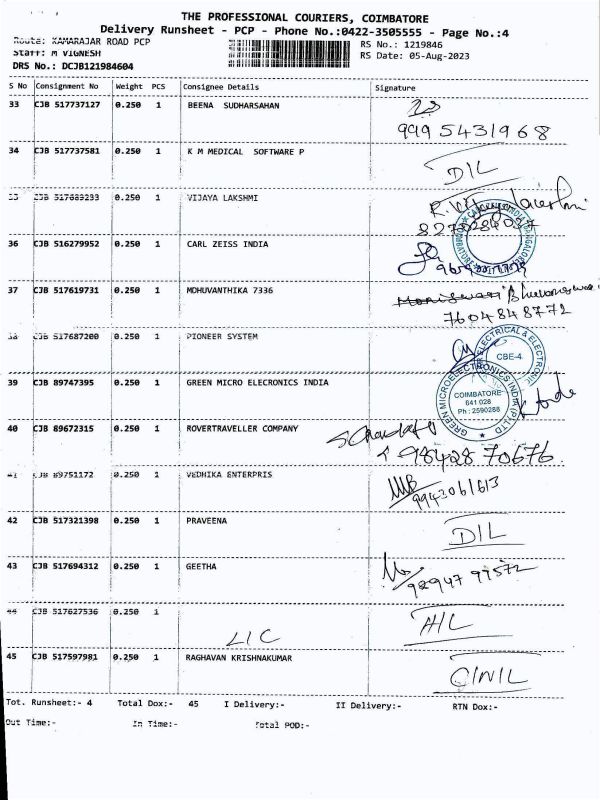 THE PROFESSIONAL COURIERS, COIMBATORE
Delivery Runsheet - PCP - Phone No.:0422-3505555 - Page No.:4
Route: KAMARAJAR ROAD PCP
RS No.: 1219846
Staff: M VIGNESH
RS Date: 05-Aug-2023
DRS No.: DCJB121984604
S No Consignment No Weight PCS Consignee Details Signature
33 CJB 517737127 0.250 1 BEENA SUDHARSAHAN
9995431968
34 CJB 517737581 0.250 1 K M MEDICAL SOFTWARE P DIL
35 CJB 517689233 0.250 1 VIJAYA LAKSHMI
36 CJB 516279952 0.250 1 CARL ZEISS INDIA
37 CJB 517619731 0.250 1 MDHUVANTHIKA 7336
7604848772
38 CJB 517687200 0.250 1 PIONEER SYSTEM
ELECTRICAL & ELECTRONIC
CBE-4
39 CJB 89747395 0.250 1 GREEN MICRO ELECRONICS INDIA
GREEN MICROELECTRONICS INDIA (P) LTD
COIMBATORE
641 028
Ph : 2590288
40 CJB 89672315 0.250 1 ROVERTRAVELLER COMPANY
98428 70676
41 CJB 89751172 0.250 1 VEDHIKA ENTERPRIS
9943061613
42 CJB 517321398 0.250 1 PRAVEENA DIL
43 CJB 517694312 0.250 1 GEETHA
44 CJB 517627536 0.250 1
LIC
45 CJB 517597981 0.250 1 RAGHAVAN KRISHNAKUMAR
Tot. Runsheet:- 4 Total Dox:- 45 I Delivery:- II Delivery:- RTN Dox:-
Out Time:- In Time:- Total POD:-